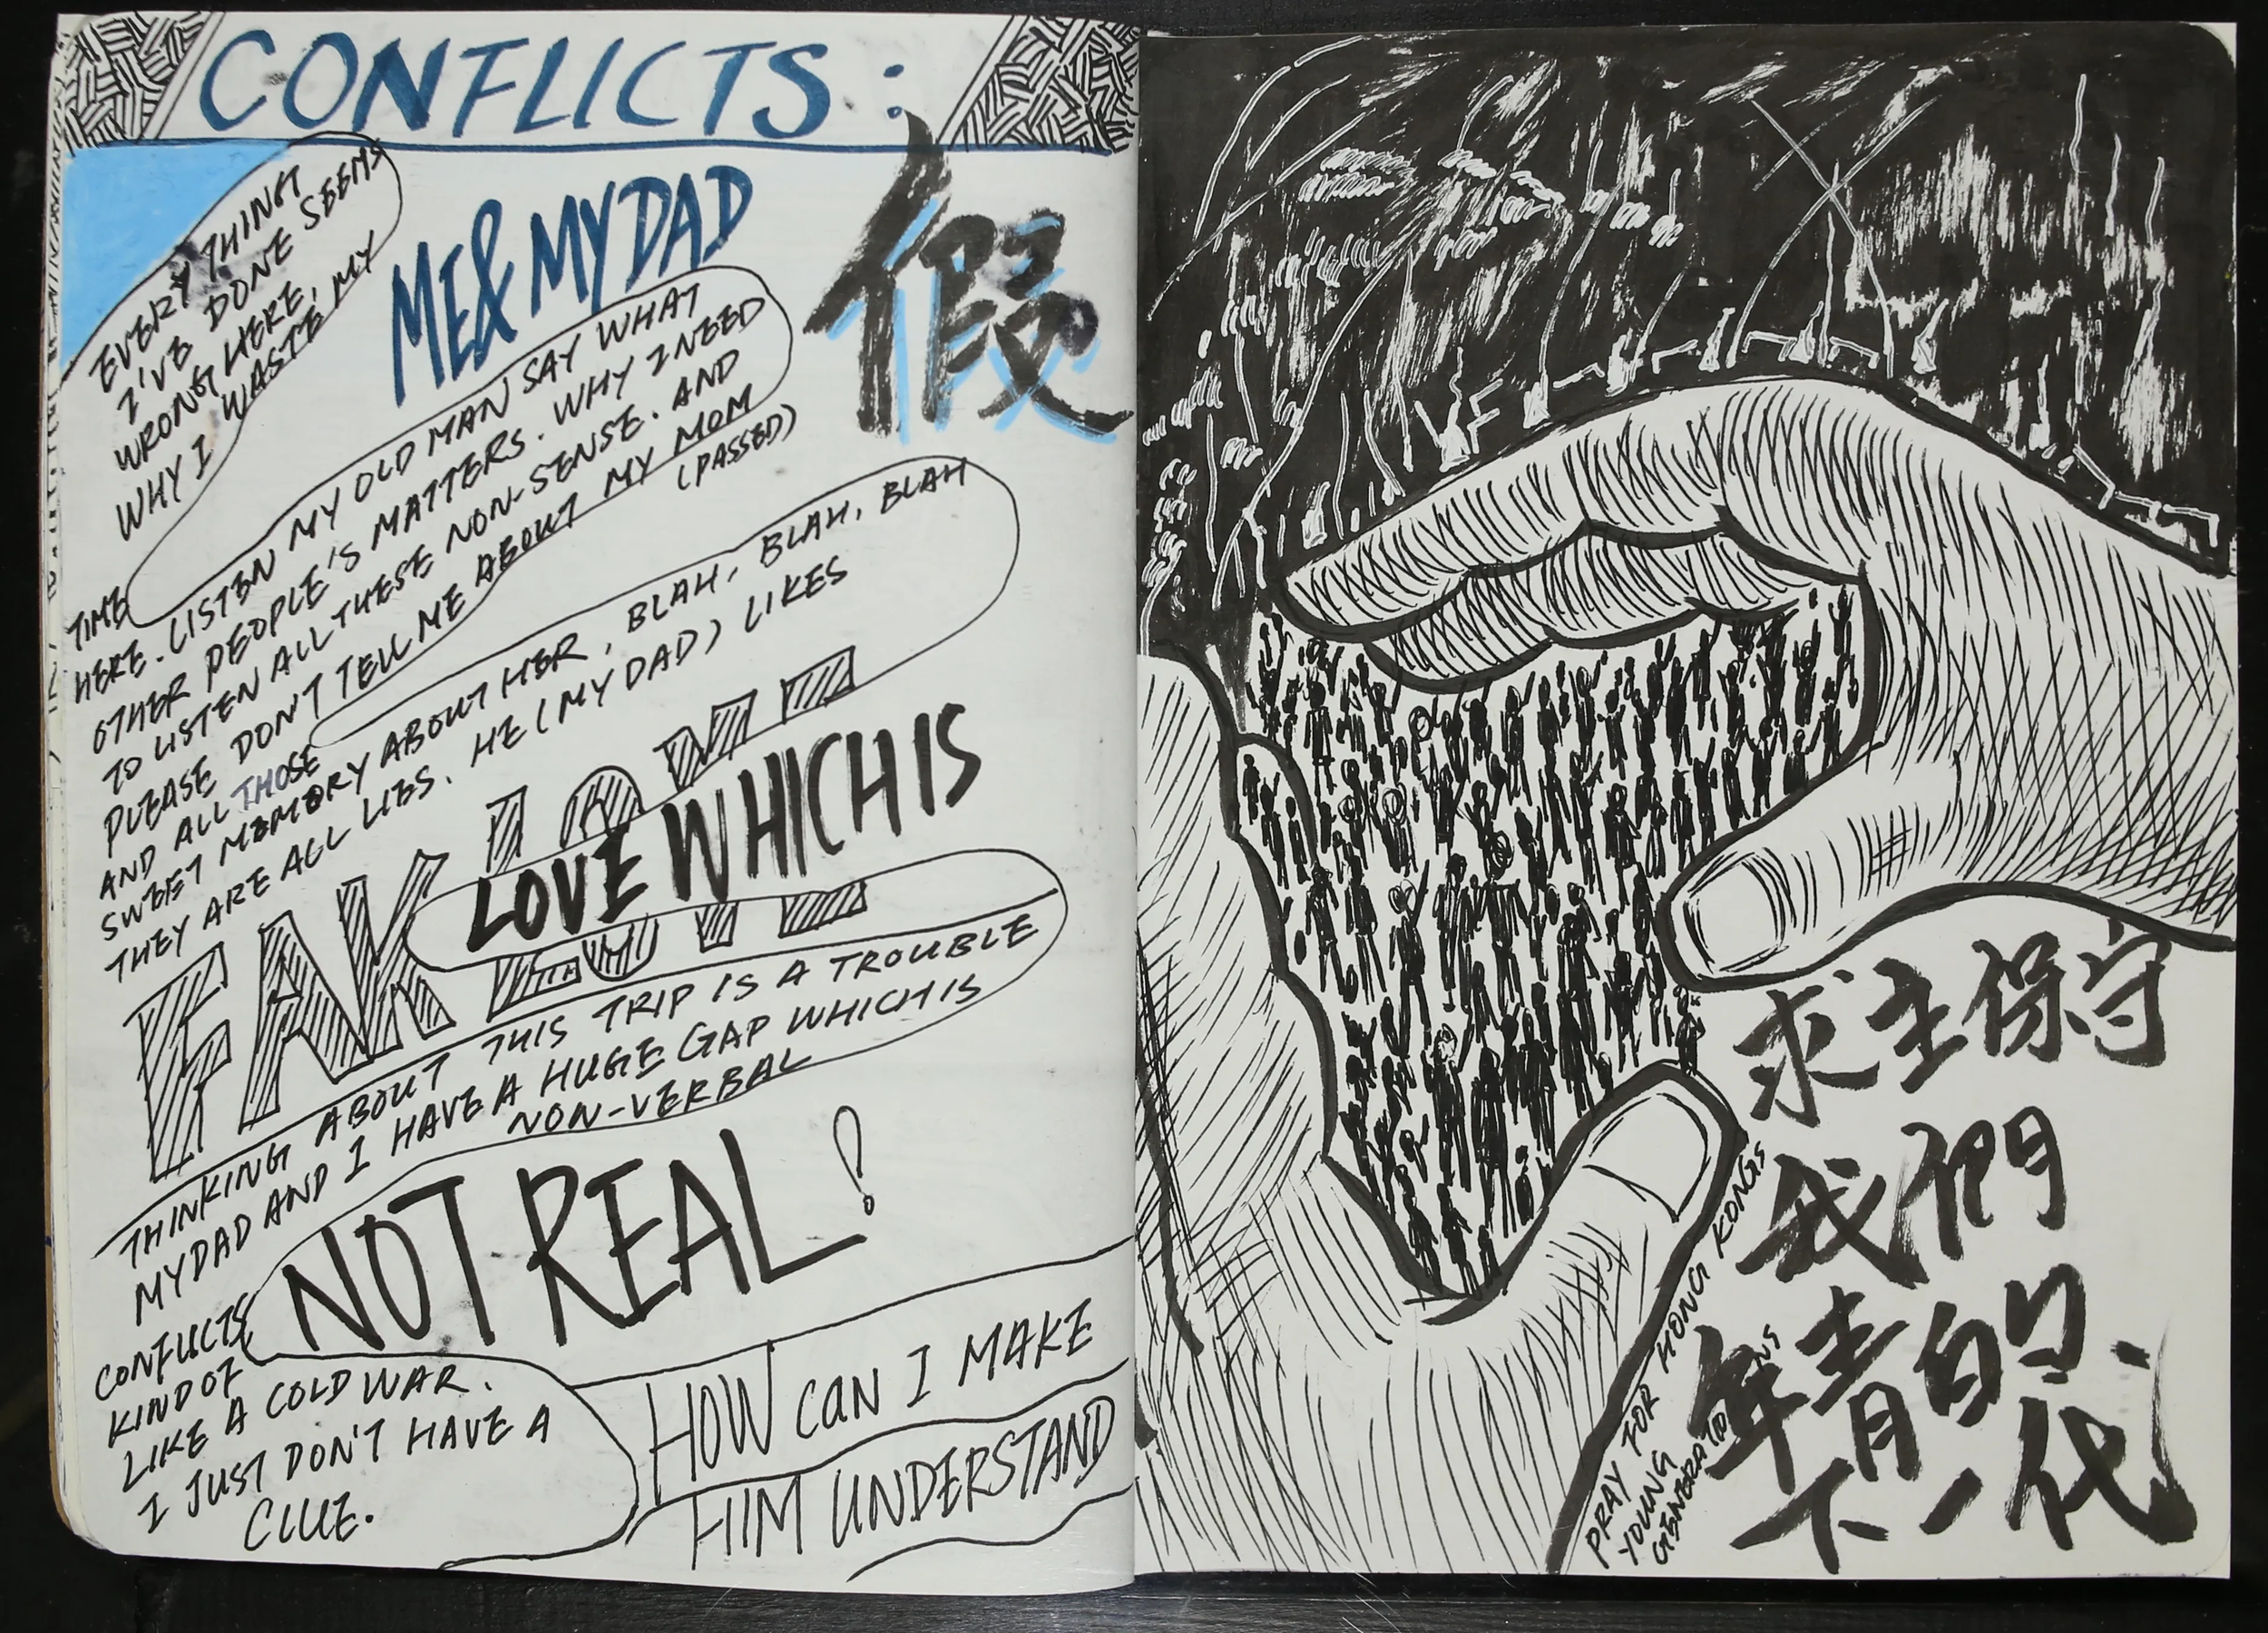 CONFLICTS:
ME & MY DAD
假
EVERY THING
I'VE DONE SEEMS
WRONG HERE,
WHY I WASTE MY
TIME
HERE. LISTEN MY OLD MAN SAY WHAT
OTHER PEOPLE'S MATTERS. WHY I NEED
TO LISTEN ALL THESE NON-SENSE. AND
PLEASE DON'T TELL ME ABOUT MY MOM
(PASSED)
AND ALL THOSE
SWEET MEMORY ABOUT HER, BLAH, BLAH, BLAH
THEY ARE ALL LIES. HE (MY DAD) LIKES
FAK LOVE
LOVE WHICH IS
THINKING ABOUT THIS TRIP IS A TROUBLE
MY DAD AND I HAVE A HUGE GAP WHICH IS
NON-VERBAL
CONFLICTS
NOT REAL!
KIND OF
LIKE A COLD WAR.
I JUST DON'T HAVE A
CLUE.
HOW CAN I MAKE
HIM UNDERSTAND
求主保守
我們
年青的
下一代
PRAY FOR HONG KONGS
YOUNG
GENERATIONS